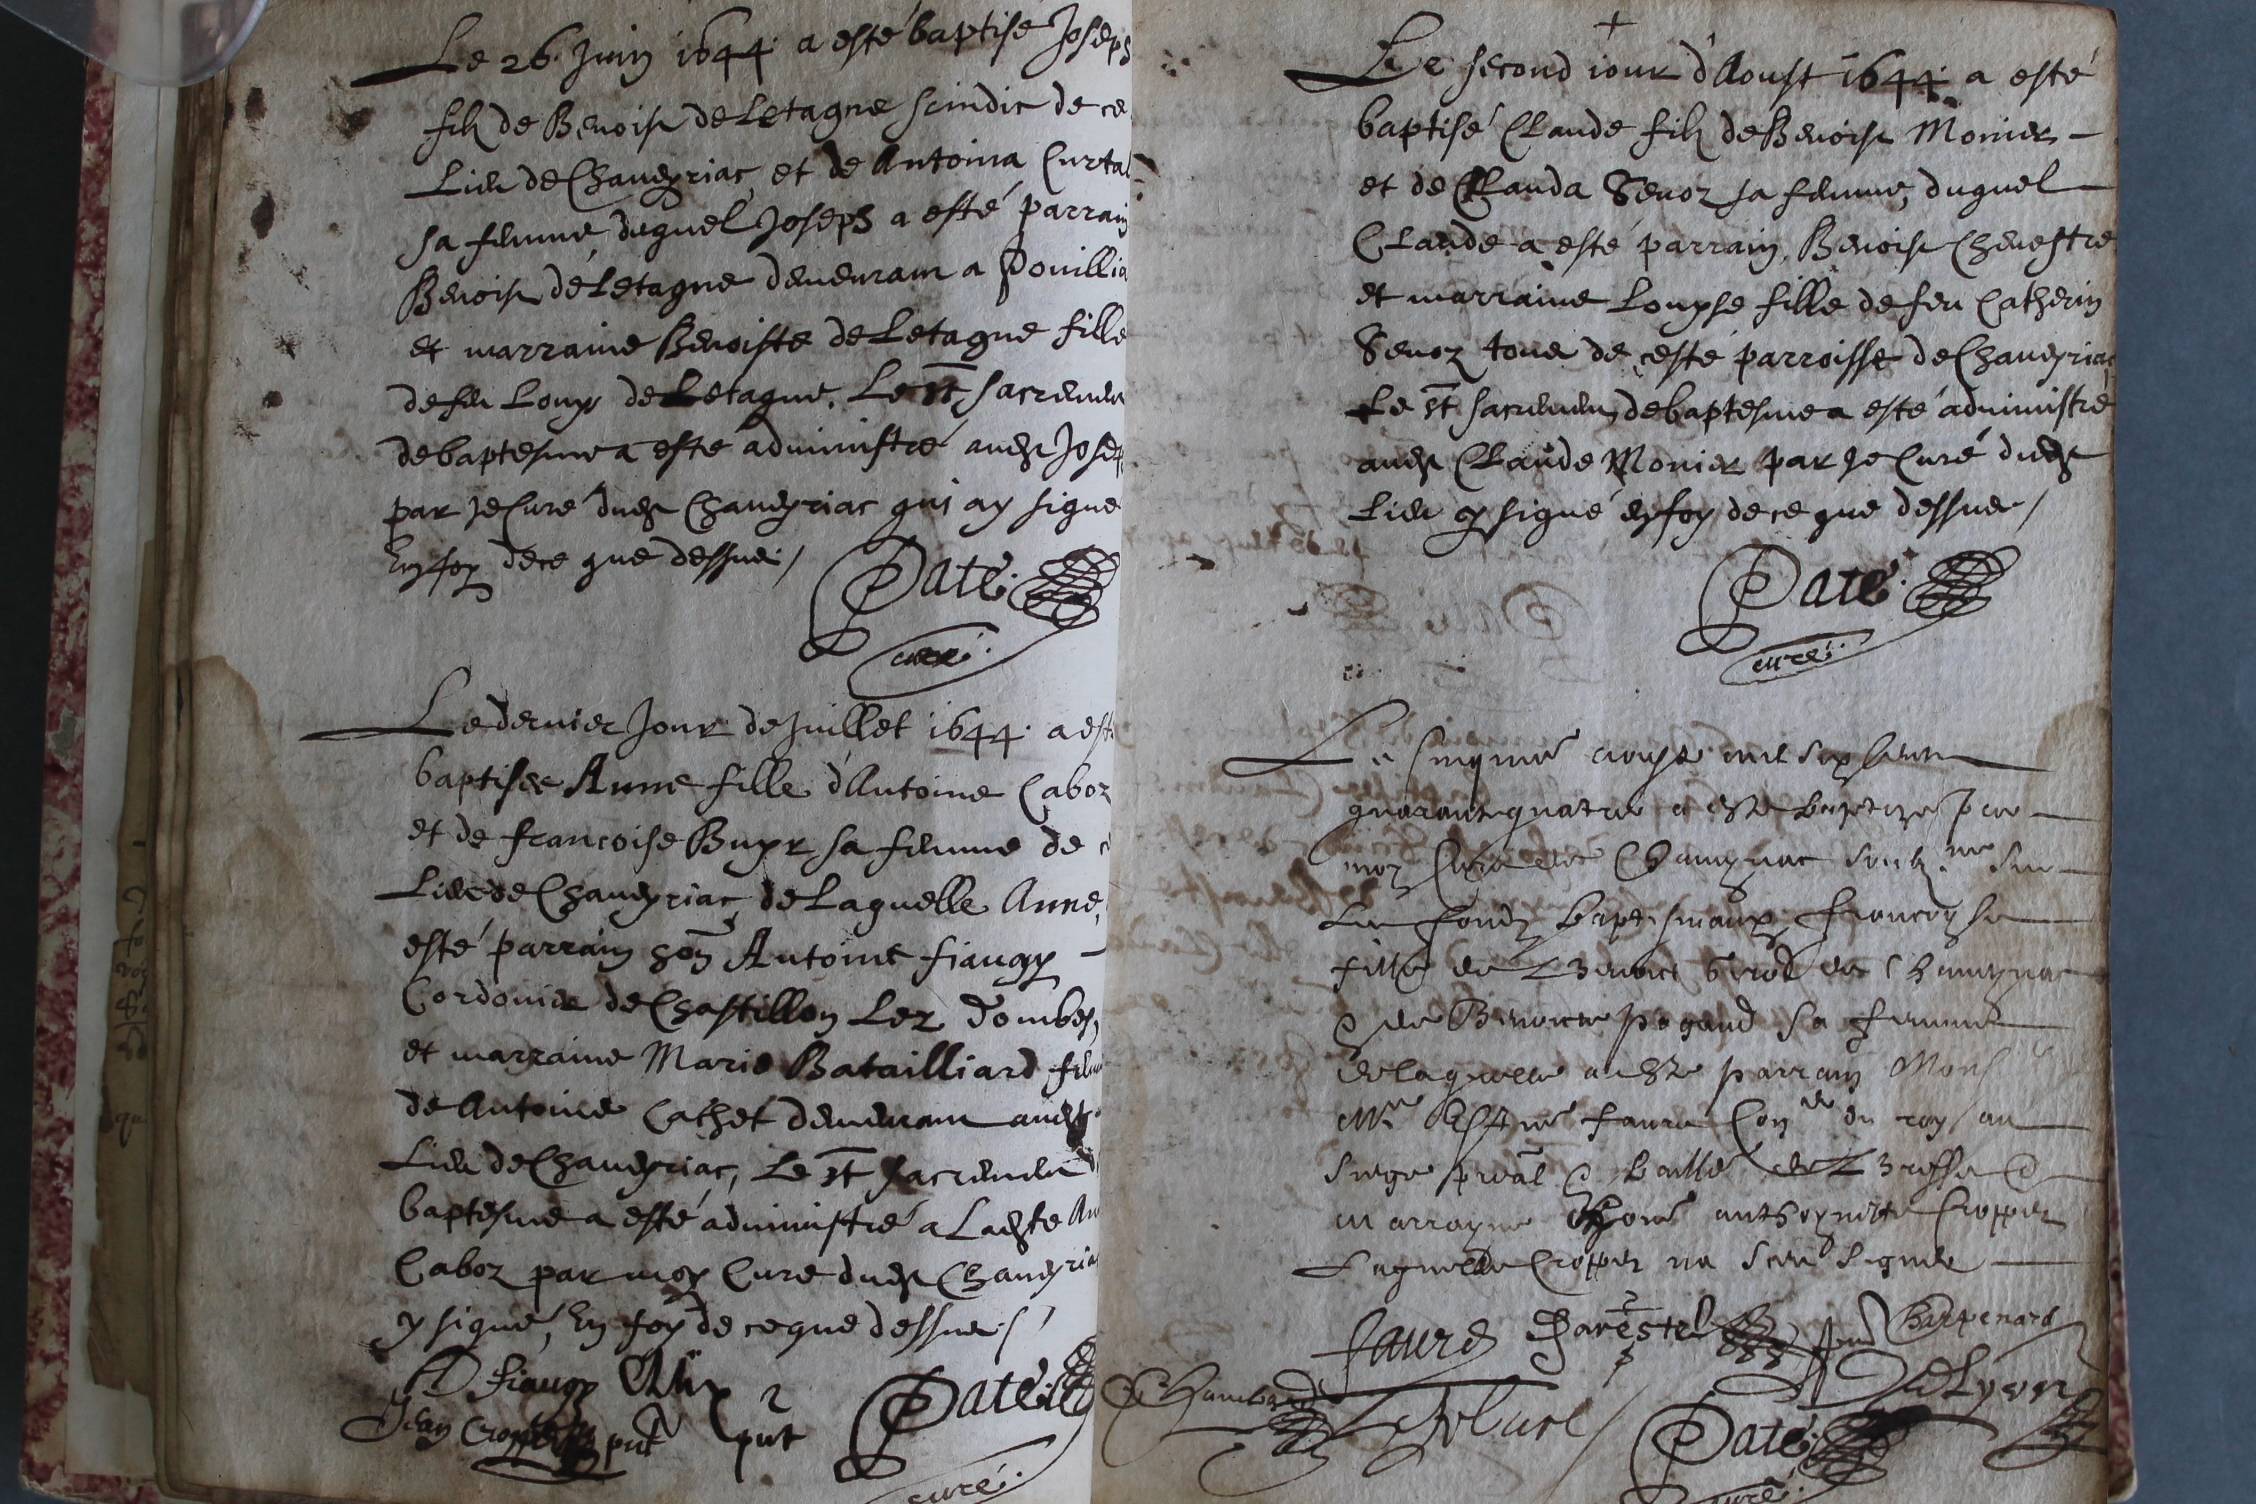 Le 26. Juin 1644. a esté baptisé Joseph
filz de Benoist de Letagne scindic de ce
Lieu de Chaveyriac, et de Antoina Curta
sa femme, duquel Joseph a esté parrain
Benoist de Letagne demeurant a Pouillia
et marraine Benoiste de Letagne fille
de feu Louys de Letagne. Le st sacremen
de baptesme a esté administré audt Josep
par Je Curé dudt Chaveyriac qui ay signe
En foy de ce que dessus /
Paté.
curé.
Le dernier Jour de Juillet 1644. a est
baptisée Anne fille d'Antoine Caboz
et de francoise Buyr sa femme de c
Lieu de Chaveyriac, de Laquelle Anne,
esté parrain hon Antoine fiaugy
Cordonier de Chastillon Lez Dombes,
et marraine Marie Batailliard fem
de Antoine Cathet demeurant audt
Lieu de Chaveyriac, Le st sacrement
baptesme a esté administré a Ladte An
Caboz par moy Curé dudt Chaveyria
y signé, En foy de ce que dessus /
A fiaugy
Jean put put
Paté
curé.
Le second iour d'Aoust 1644. a esté
baptisé Claude filz de Benoist Monier
et de Clauda Sevoz sa femme, duquel
Claude a esté parrain, Benoist Chevestre
et marraine Louyse fille de feu Catherin
Sevoz tous de ceste parroisse de Chaveyriac
Le st sacrement de baptesme a esté administré
audt Claude Monier par Je Curé dudt
Lieu y signé en foy de ce que dessus /
Paté.
curé.
Le Cinqme aoust mil six cent
quarante quatre a esté baptizé par
moy Curé de Chaveyriac soubz.né sur
Les fondz baptismaux francoyse
fille de Benoict de Chaveyriac
& de Benoicte pogand sa femme
de laquelle a esté parrain Mons
Mre faure Coner du roy au
siege pñal & bailliage de Bresse &
marrayne honé anthoynette Cropper
Laquelle Cropper na sceu signer
faure Darestel Harpenard
Chambard DeLyon
Paté.
curé